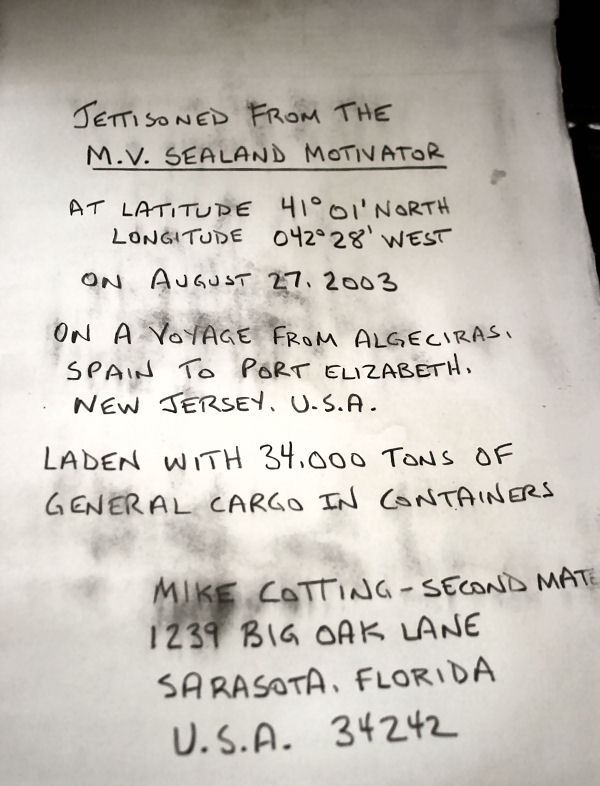 JETTISONED FROM THE
M.V. SEALAND MOTIVATOR
AT LATITUDE 41° 01' NORTH
LONGITUDE 042° 28' WEST
ON AUGUST 27, 2003
ON A VOYAGE FROM ALGECIRAS,
SPAIN TO PORT ELIZABETH,
NEW JERSEY, U.S.A.
LADEN WITH 34,000 TONS OF
GENERAL CARGO IN CONTAINERS
MIKE COTTING - SECOND MATE
1239 BIG OAK LANE
SARASOTA, FLORIDA
U.S.A. 34242